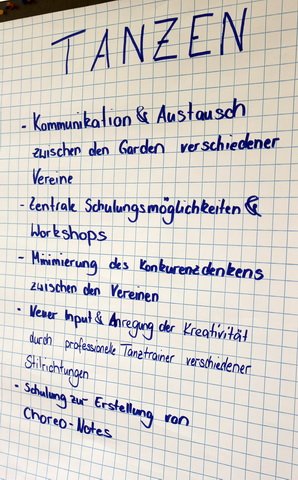 TANZEN
- Kommunikation & Austausch
zwischen den Garden verschiedener
Vereine
- Zentrale Schulungsmöglichkeiten &
Workshops
- Minimierung des Konkurenzdenkens
zwischen den Vereinen
- Neuer Input & Anregung der Kreativität
durch professionelle Tanztrainer verschiedener
Stilrichtungen
- Schulung zur Erstellung von
Choreo-Notes